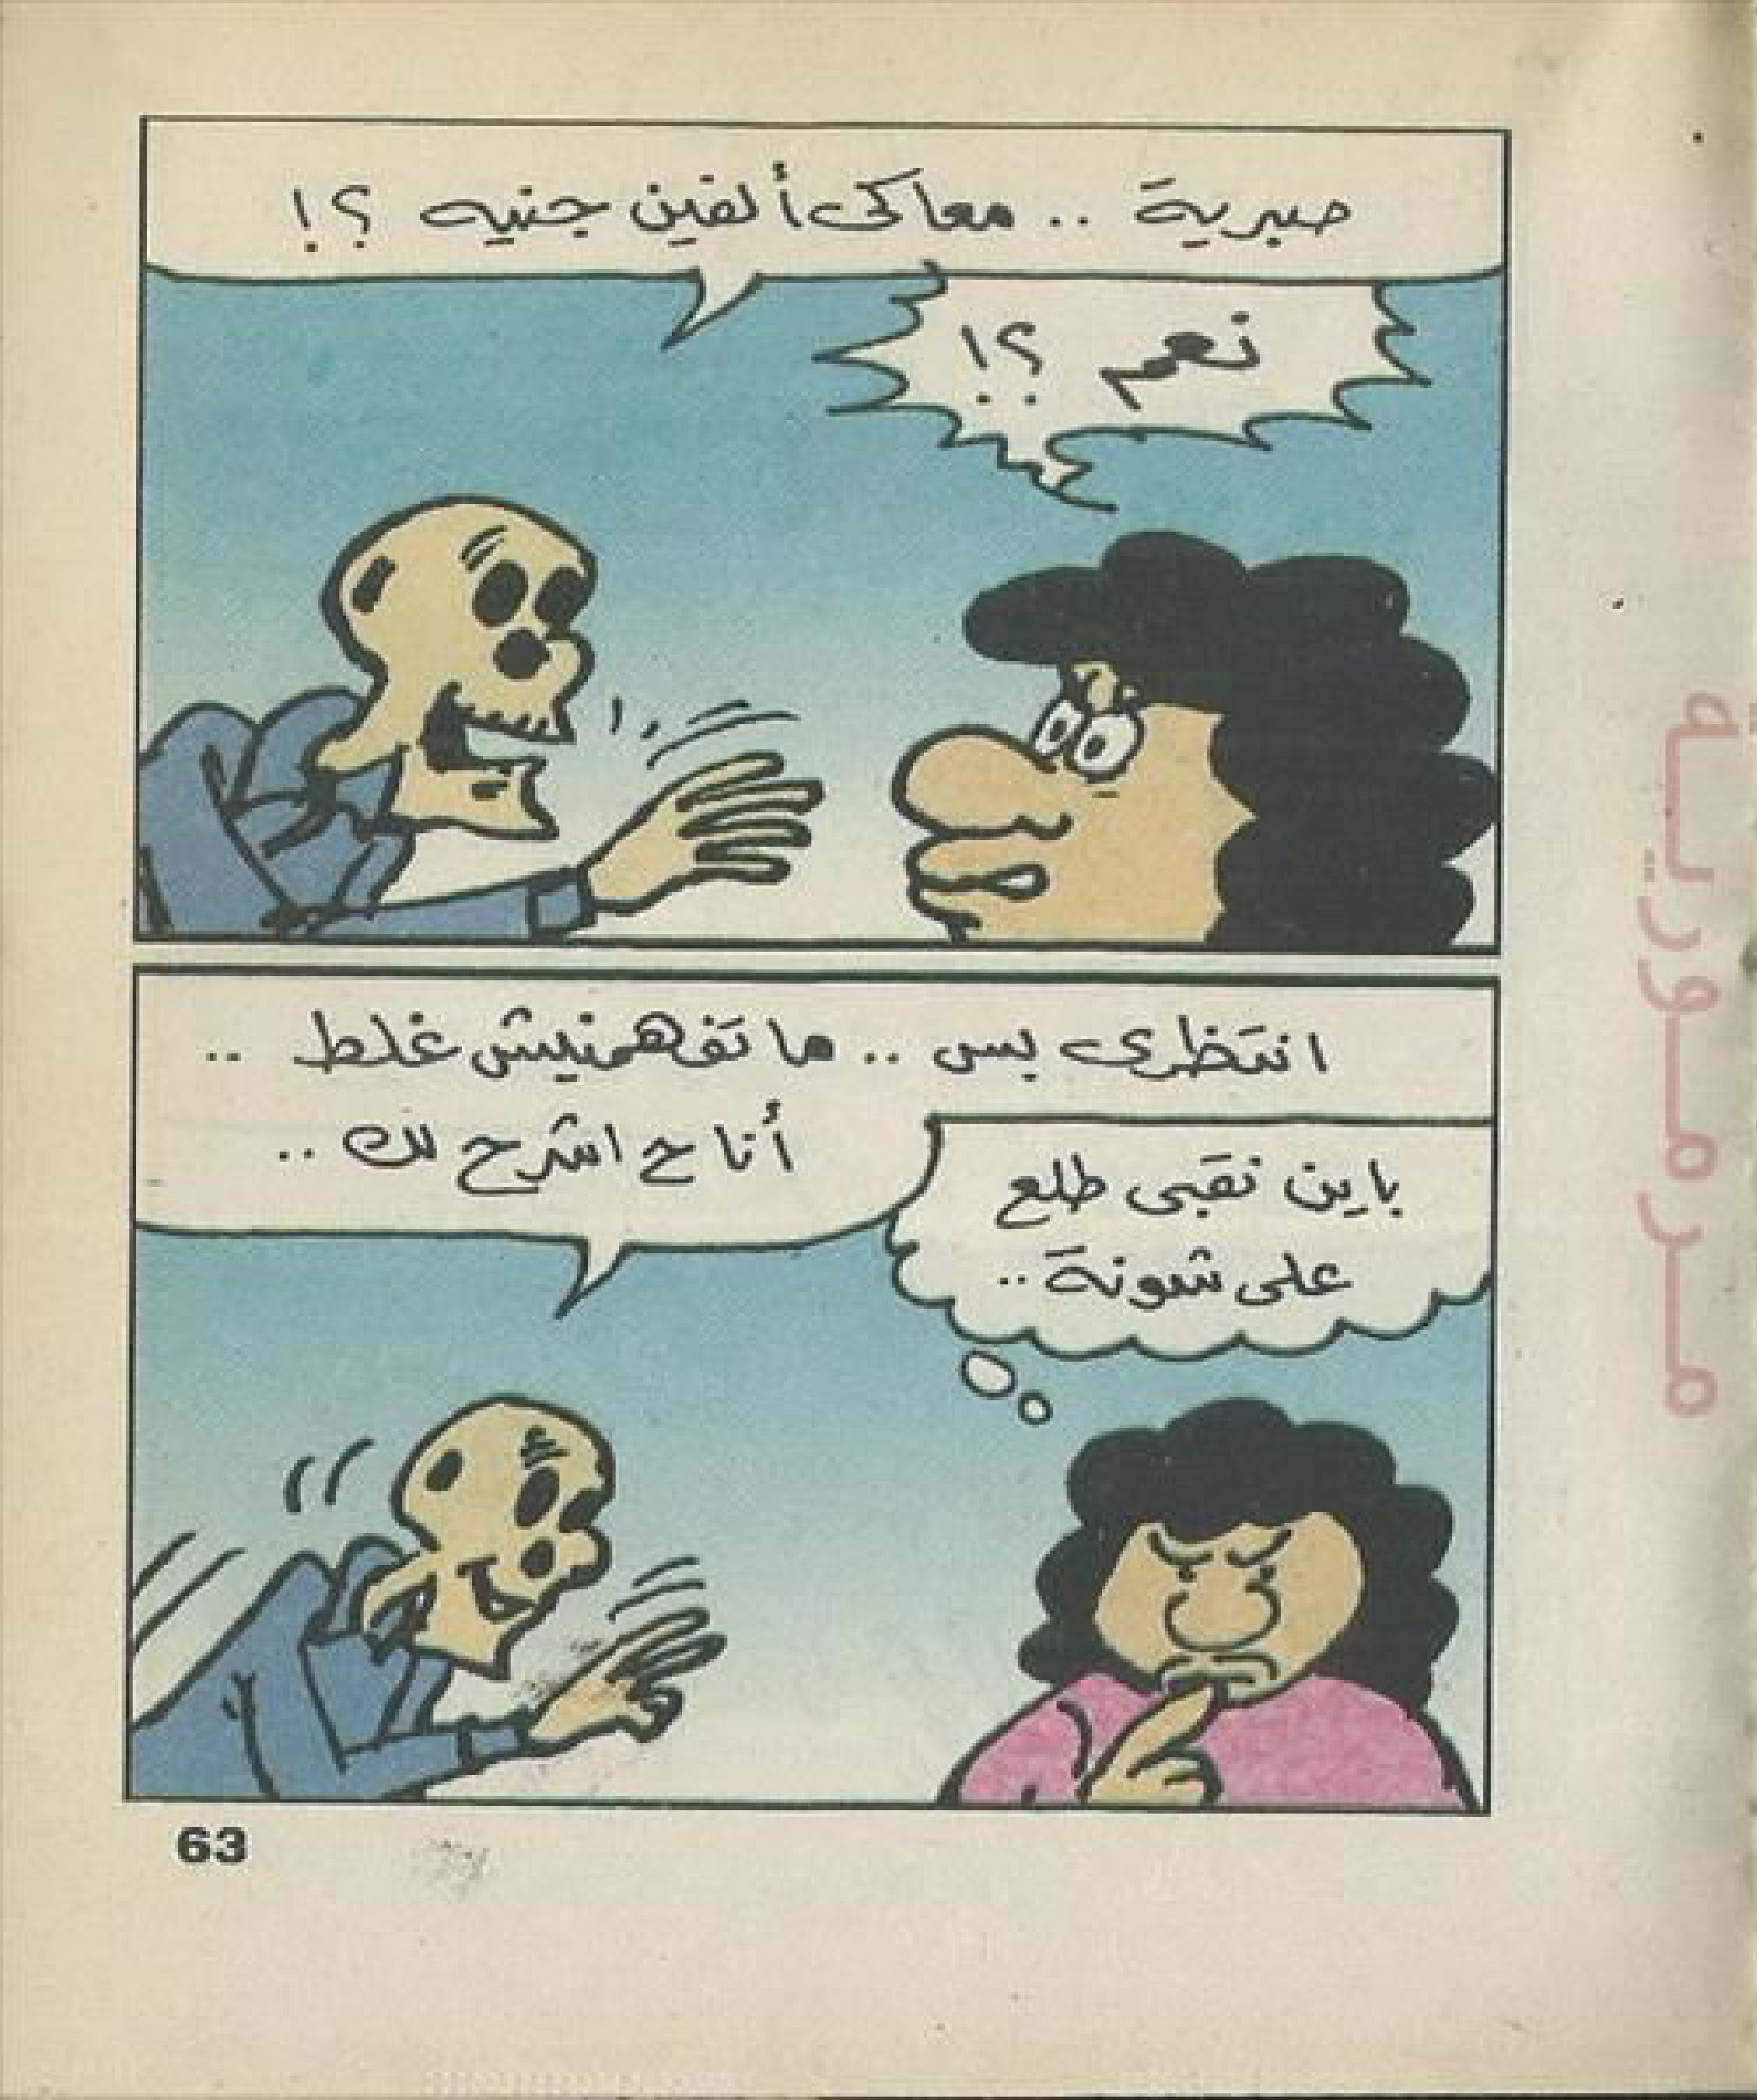 صبرية .. معاكى ألفين جنيه ؟!
نعم ؟!
انتظرى بس .. ما تفهمنيش غلط ..
أنا ح اشرح لك ..
باين نقبى طلع
على شونة ..
63